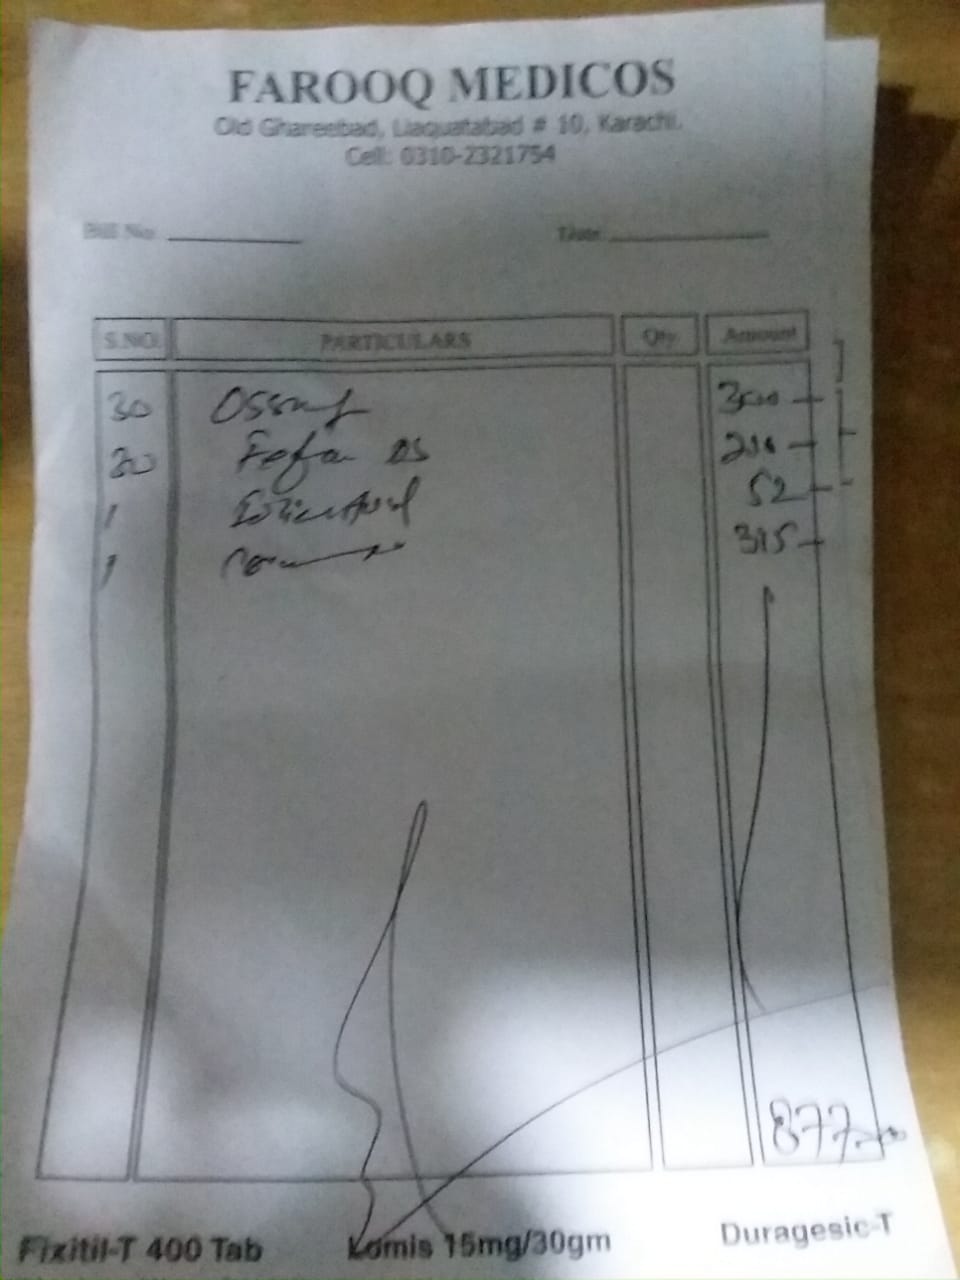 FAROOQ MEDICOS
Old Ghareebad, Liaquatabad # 10, Karachi.
Cell: 0310-2321754
Bill No. Date
S.NO. PARTICULARS Qty Amount
30
Fefa DS
1 52
1 315
877
Fixitil-T 400 Tab Lomis 15mg/30gm Duragesic-T